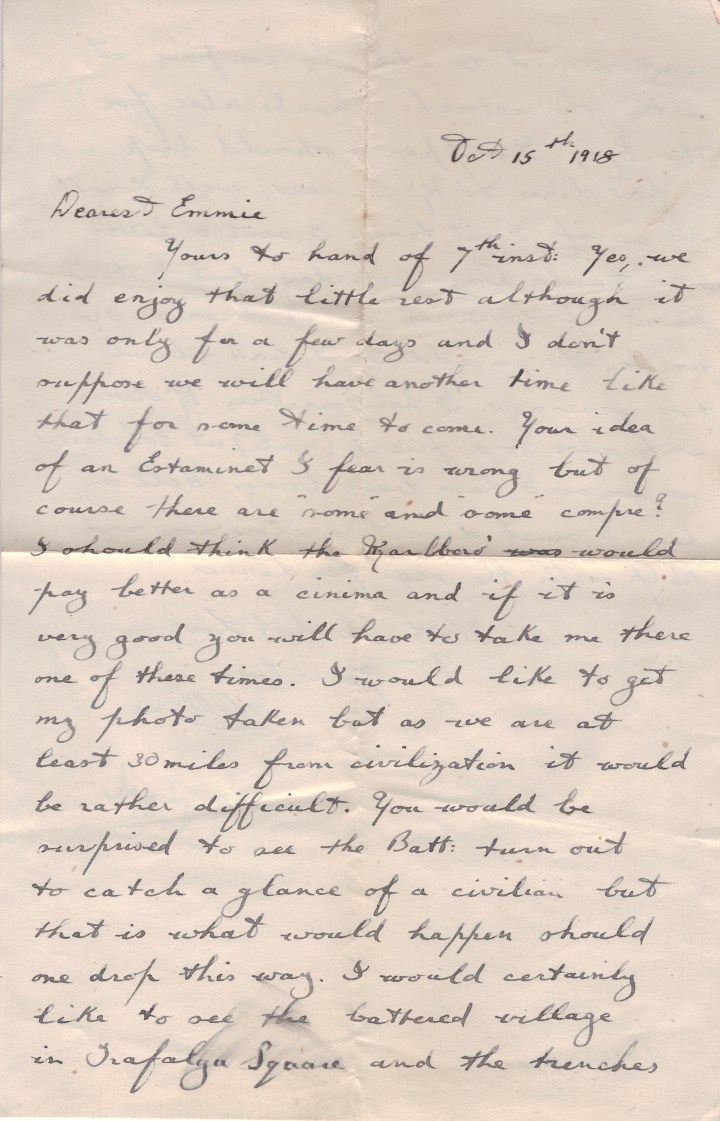 Oct 15th 1918
Dearest Emmie
Yours to hand of 7th inst: Yes, we
did enjoy that little rest although it
was only for a few days and I don't
suppose we will have another time like
that for some time to come. Your idea
of an Estaminet I fear is wrong but of
course there are "some" and "some" compre?
I should think the Marlboro' was would
pay better as a cinima and if it is
very good you will have to take me there
one of these times. I would like to get
my photo taken but as we are at
least 30 miles from civilization it would
be rather difficult. You would be
surprised to see the Batt: turn out
to catch a glance of a civilian but
that is what would happen should
one drop this way. I would certainly
like to see the battered village
in Trafalgar Square and the trenches